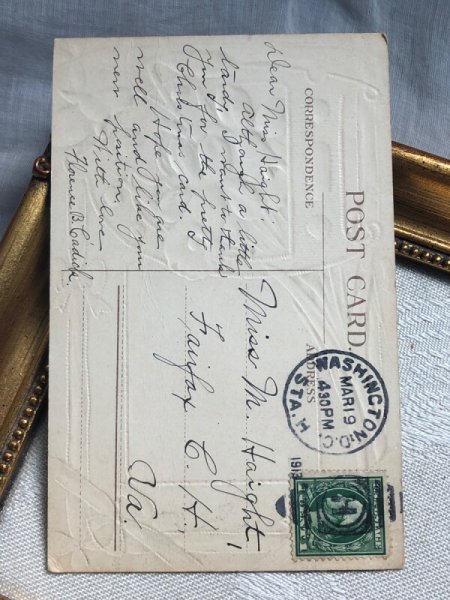 POST CARD
CORRESPONDENCE
ADDRESS
Dear Miss Haight:
Although a little
tardy, I want to thank
you for the pretty
Christmas card. I
Hope you are
well and like your
new position.
With love
Florence B.
WASHINGTON, D.C.
MAR 19
4:30 PM
STA. H
1912
Miss M. Haight,
Fairfax C. H.,
Va.
1 CENT 1